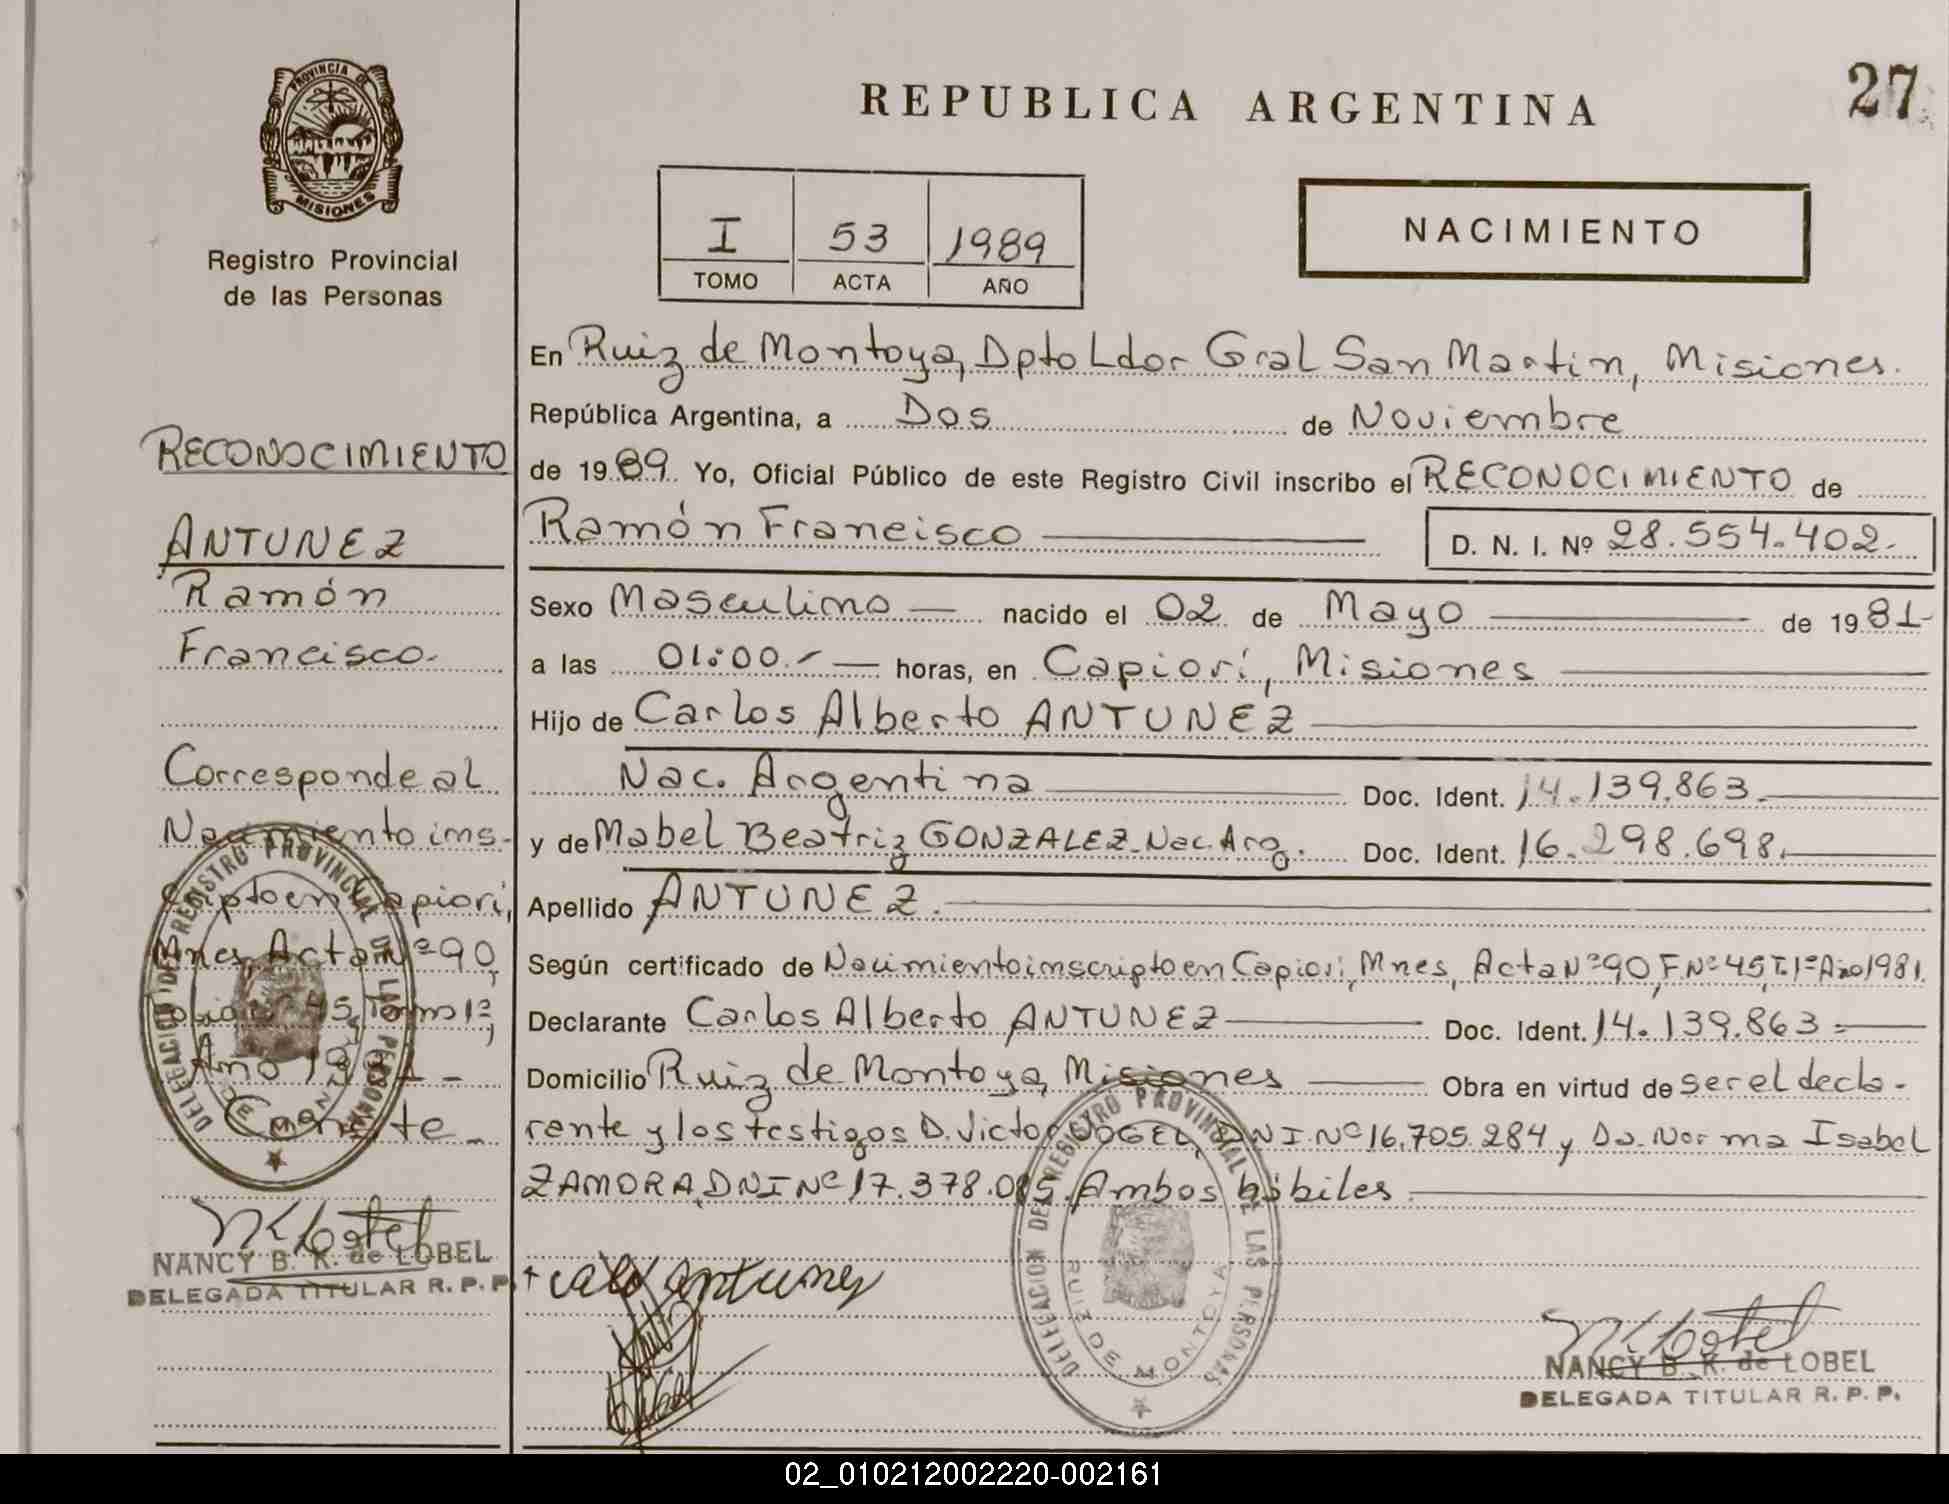 PROVINCIA DE
MISIONES
Registro Provincial
de las Personas
RECONOCIMIENTO
ANTUNEZ
Ramón
Francisco.
Corresponde al
Nacimiento ins-
cripto en Capiovi,
Mnes, Acta Nº 90,
Folio Nº 45, Tomo 1º,
Año 1981 -
Conste -
DELEGACION DEL REGISTRO PROVINCIAL DE LAS PERSONAS
RUIZ DE MONTOYA
NANCY B. K. de LOBEL
DELEGADA TITULAR R. P. P.
27
REPUBLICA ARGENTINA
I 53 1989
TOMO ACTA AÑO
NACIMIENTO
En Ruiz de Montoya, Dpto Ldor Gral San Martin, Misiones.
República Argentina, a Dos de Noviembre
de 1989. Yo, Oficial Público de este Registro Civil inscribo el RECONOCIMIENTO de
Ramón Francisco D. N. I. Nº 28.554.402.-
Sexo Masculino nacido el 02 de Mayo de 1981-
a las 01:00.- horas, en Capiovi, Misiones
Hijo de Carlos Alberto ANTUNEZ
Nac. Argentina Doc. Ident. 14.139.863.-
y de Mabel Beatriz GONZALEZ. Nac. Arg. Doc. Ident. 16.298.698.
Apellido ANTUNEZ.
Según certificado de Nacimiento inscripto en Capiovi, Mnes, Acta Nº 90, F. Nº 45, T. 1º Año 1981.
Declarante Carlos Alberto ANTUNEZ Doc. Ident. 14.139.863 =
Domicilio Ruiz de Montoya, Misiones Obra en virtud de ser el decla-
rante y los testigos D. Victor VOGEL, DNI. Nº 16.705.284 y Da. Norma Isabel
ZAMORA, DNI Nº 17.378.085. Ambos hábiles
DELEGACION DEL REGISTRO PROVINCIAL DE LAS PERSONAS
RUIZ DE MONTOYA
NANCY B. K. de LOBEL
DELEGADA TITULAR R. P. P.
02_010212002220-002161